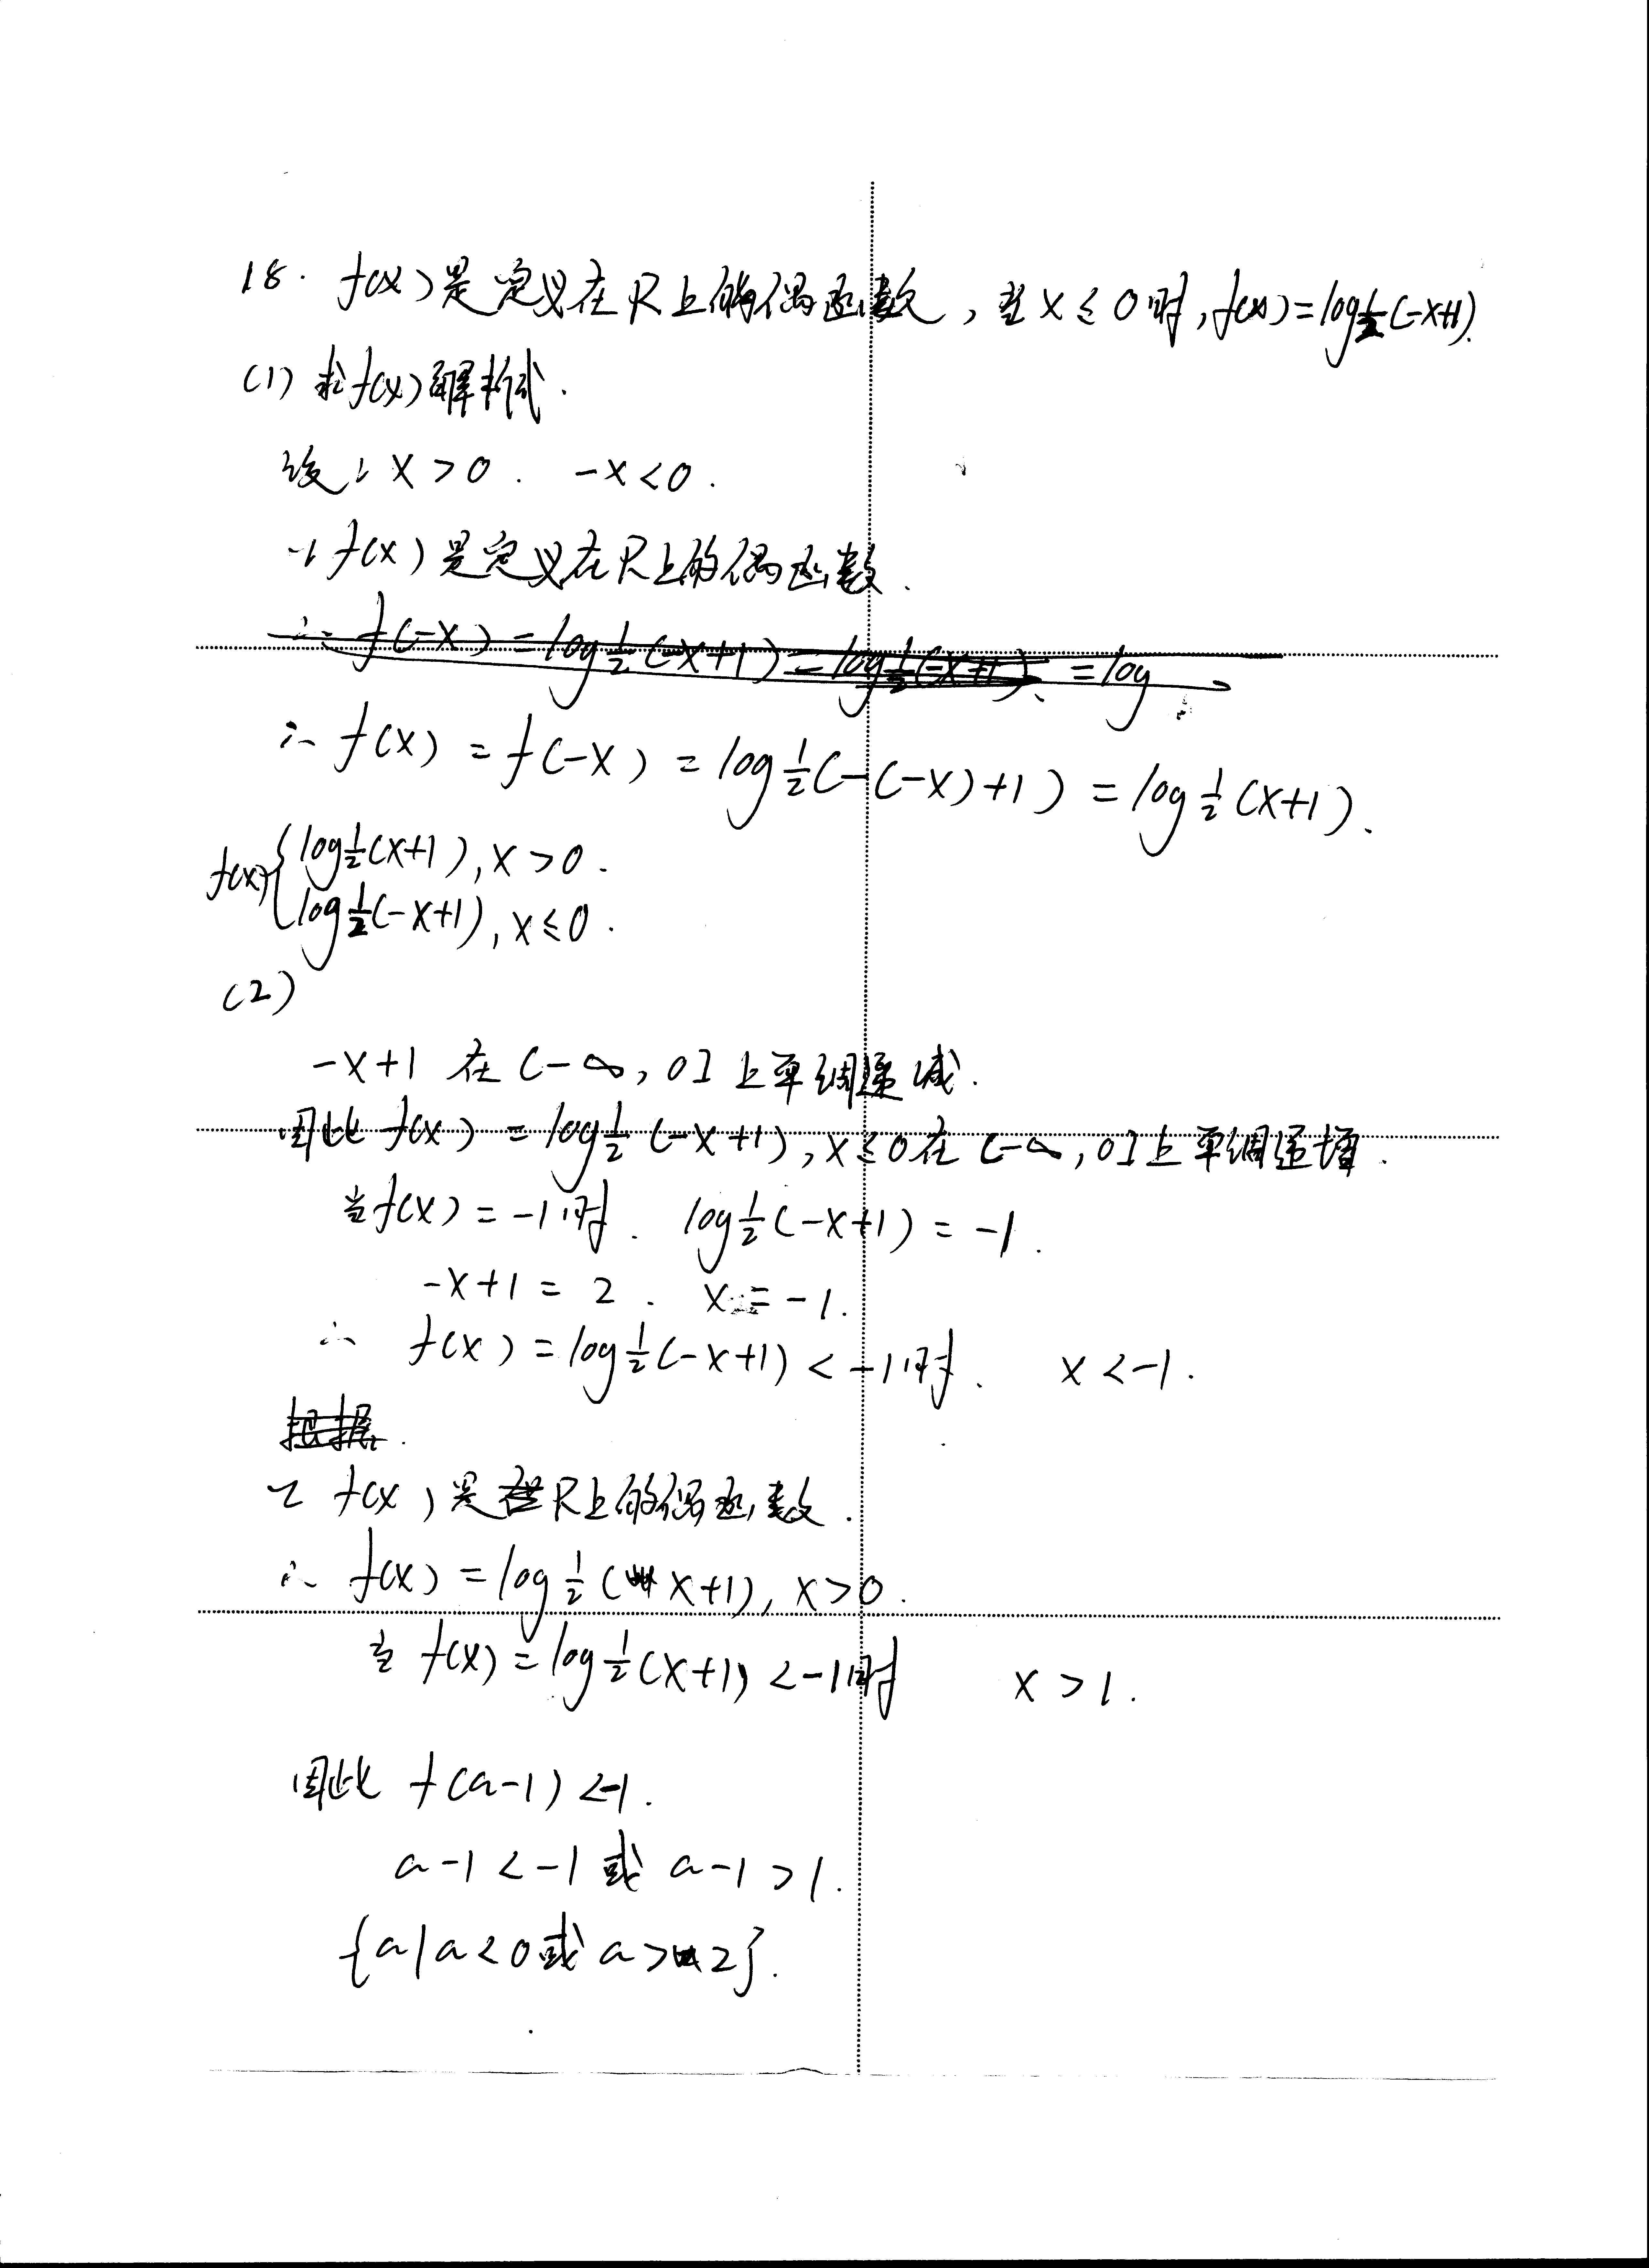 18. f(x)是定义在R上的偶函数,当x≤0时,f(x)=log½(-x+1).
(1) 求f(x)解析式.
设: x>0. -x<0.
∵ f(x)是定义在R上的偶函数.
∴ f(-x)=log½(-x+1)=log½(-x+1).=log
∴ f(x)=f(-x)=log½(-(-x)+1)=log½(x+1).
f(x){log½(x+1), x>0.
log½(-x+1), x≤0.
(2)
-x+1 在(-∞,0]上单调递减.
因此 f(x)=log½(-x+1), x≤0在(-∞,0]上单调递增.
当f(x)=-1时. log½(-x+1)=-1.
-x+1=2. x=-1.
∴ f(x)=log½(-x+1)<-1时. x<-1.
根据.
∵ f(x)是在R上的偶函数.
∴ f(x)=log½(x+1), x>0.
当 f(x)=log½(x+1)<-1时 x>1.
因此 f(a-1)<-1.
a-1<-1或a-1>1.
{a|a<0或a>2}.